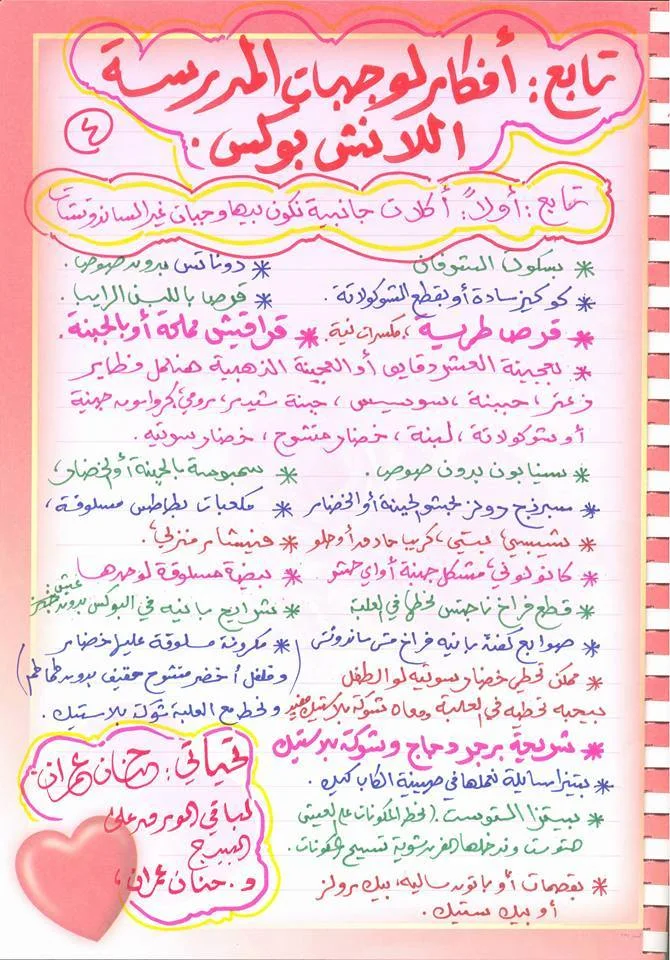 تابع: أفكار لوجبات المدرسة
اللانش بوكس.
٤
تابع: أولاً: أكلات جانبية نكون بيها وجبات غير الساندوتشات
* بسكوت الشوفان
* دوناتس بدون صوص.
* كوكيز سادة أو بقطع الشوكولاتة.
* قرص باللبن الرايب.
* قرص طرية، مكسرات نية.
* قراقيش مملحة أو بالجبنة.
* بعجينة العشر دقايق أو العجينة الذهبية هنعمل فطاير
زعتر، جبنة، سوسيس، جبنة شيدر، برومي، كرواسون جبنة
أو شوكولاتة، لبنة، خضار متشوح، خضار سوتيه.
* سينابون بدون صوص.
* سمبوسة بالجبنة أو الخضار،
* سبرنج رولز بحشو الجبنة أو الخضار
* مكعبات بطاطس مسلوقة،
* شيبسي بيتي، كريب حادق أو حلو
* فيشار منزلي،
* كانولوني، مشكل جبنة أو أي حشو
* بيضة مسلوقة لوحدها
* قطع فراخ ناجتس نحطها في العلبة
* شرايح بانيه في البوكس بدون عيش خبز
* صوابع كفتة بانيه فراخ مش ساندوتش
* مكرونة مسلوقة عليها خضار
(وفلفل أخضر متشوح خفيف بدون طماطم)
ونحط مع العلبة شوكة بلاستيك.
* ممكن تحطي خضار سوتيه لو الطفل
بيحبه تحطيه في العلبة ومعاه شوكة بلاستيك
* شريحة برجر دجاج وشوكة بلاستيك
* بيتزا سايلة نعملها في صينية الكاب كيك.
* بيتزا التوست. (نحط المكونات على العيش
التوست وندخلها الفرن شوية تسيح المكونات.
* بقصمات أو باتون ساليه، بيك رولز
أو بيك ستيك.
تحياتي: حنان عمران
لباقي الورق على
البيدج
و. حنان عمران،